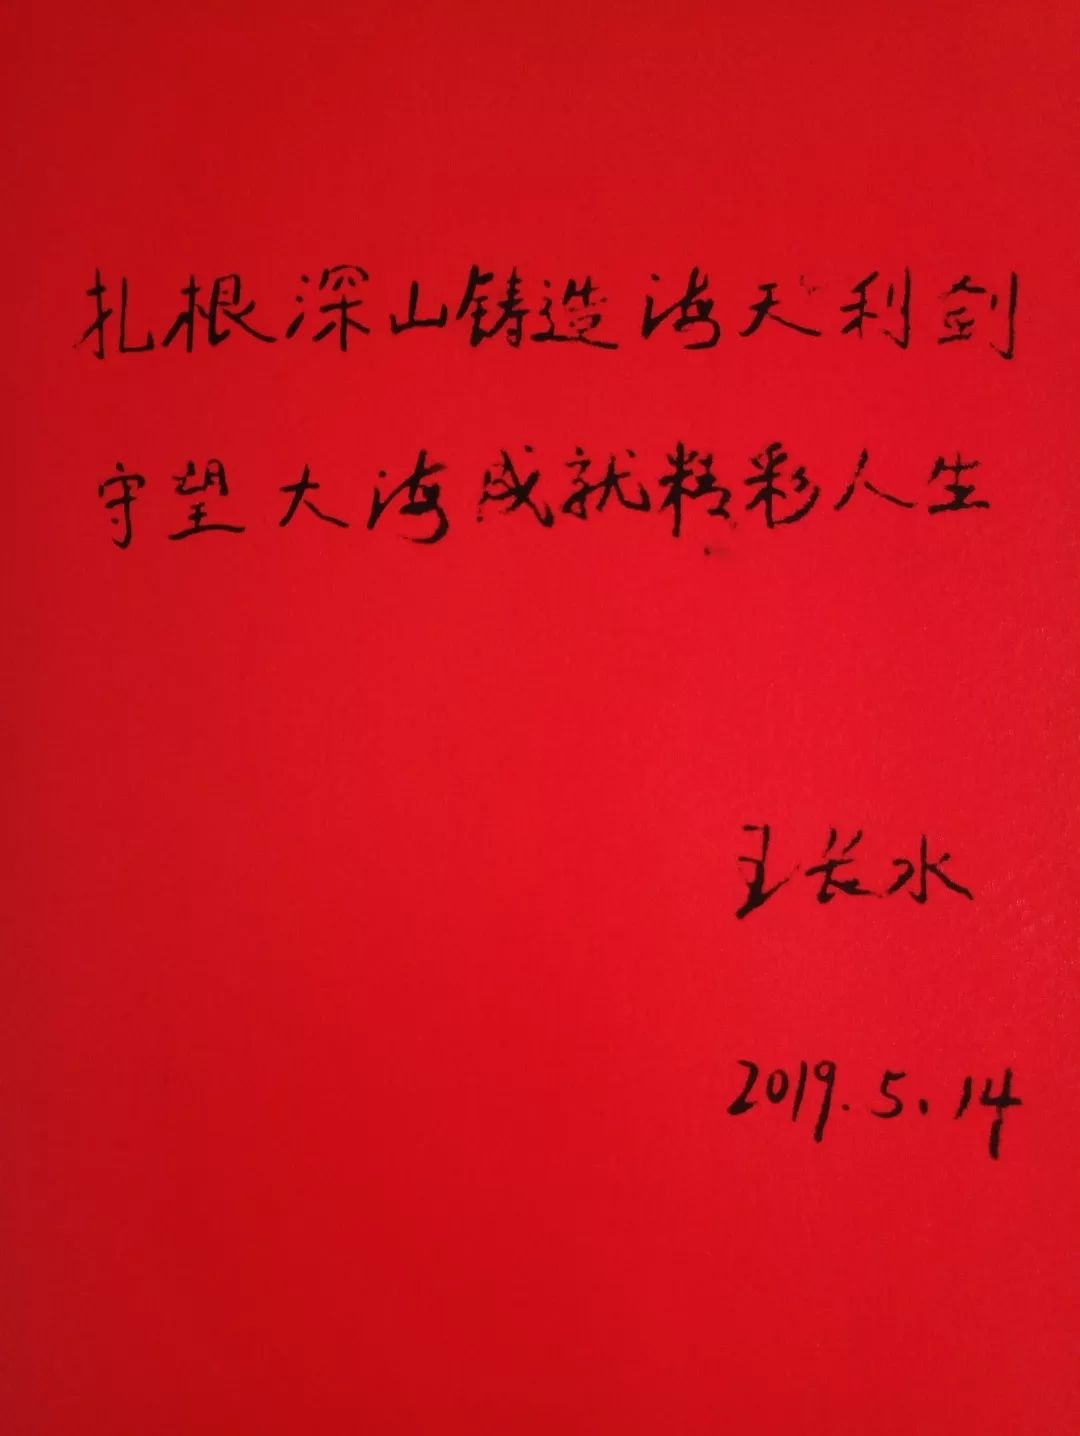 扎根深山铸造海天利剑
守望大海成就精彩人生
王长水
2019.5.14